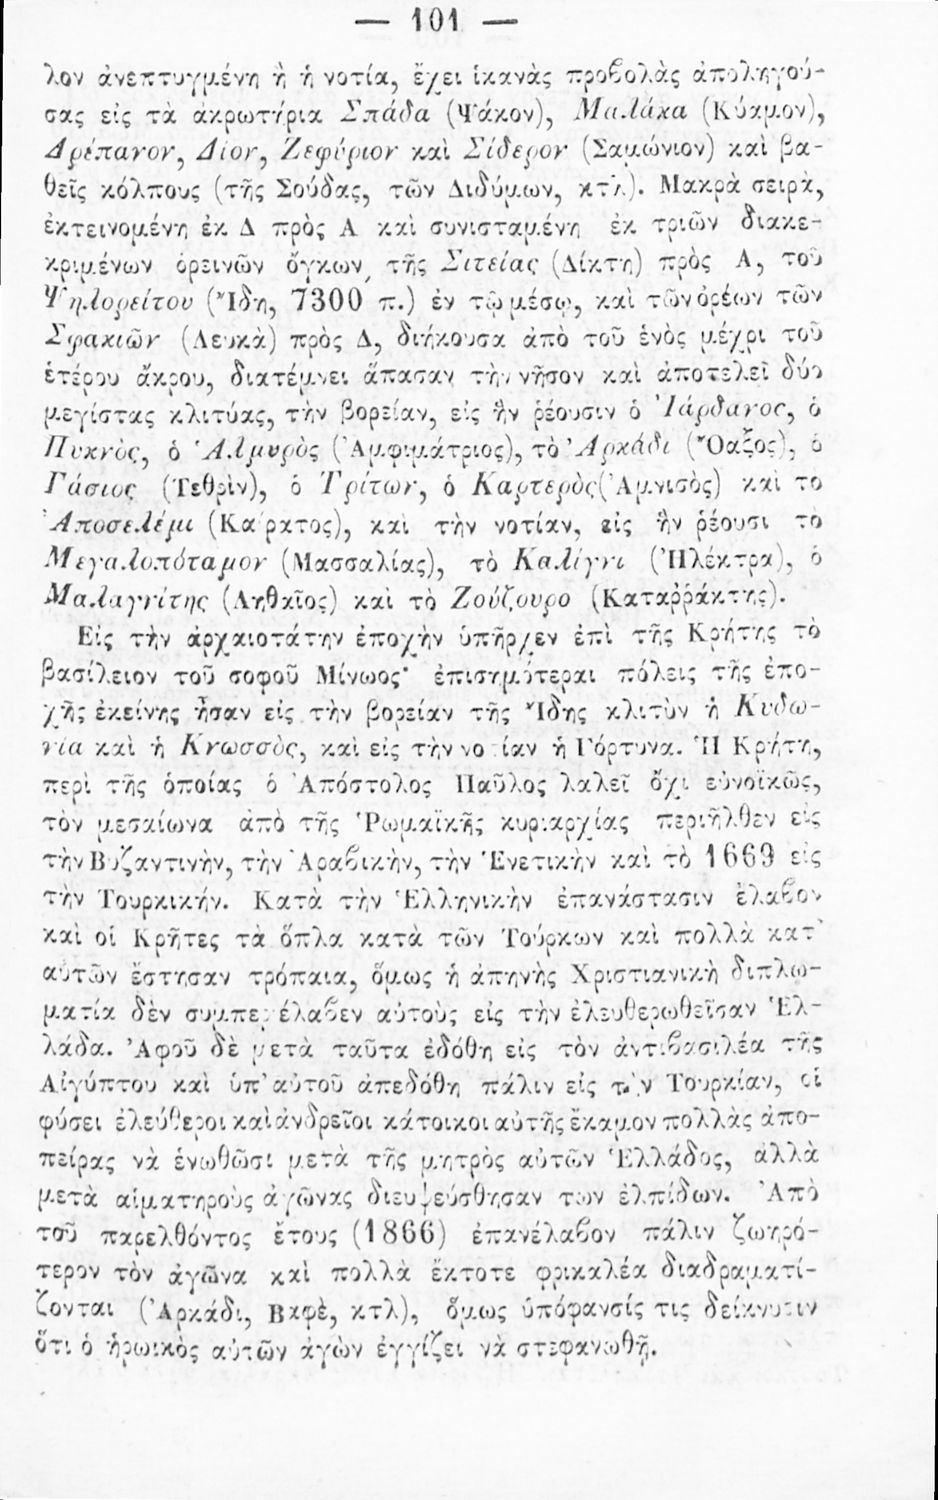 — 101 —
λον ἀνεπτυγμένη ἢ ἡ νοτία, ἔχει ἱκανὰς προβολὰς ἀποληγού-
σας εἰς τὰ ἀκρωτήρια Σπάδα (Ψάκον), Μαλάκα (Κύαμον),
Δρέπανον, Δίον, Ζεφύριον καὶ Σίδερον (Σαμώνιον) καὶ βα-
θεῖς κόλπους (τῆς Σούδας, τῶν Διδύμων, κτλ). Μακρὰ σειρὰ,
ἐκτεινομένη ἐκ Δ πρὸς Α καὶ συνισταμένη ἐκ τριῶν διακε-
κριμένων ὀρεινῶν ὄγκων, τῆς Σιτείας (Δίκτη) πρὸς Α, τοῦ
Ψηλορείτου (Ἴδη, 7300 π.) ἐν τῷ μέσῳ, καὶ τῶν ὀρέων τῶν
Σφακιῶν (Λευκὰ) πρὸς Δ, διήκουσα ἀπὸ τοῦ ἑνὸς μέχρι τοῦ
ἑτέρου ἄκρου, διατέμνει ἅπασαν τὴν νῆσον καὶ ἀποτελεῖ δύο
μεγίστας κλιτύας, τὴν βορείαν, εἰς ἣν ῥέουσιν ὁ Ἰάρδανος, ὁ
Πυκνὸς, ὁ Ἁλμυρὸς (Ἀμφιμάτριος), τὸ Ἀρκάδι (Ὄαξος), ὁ
Γάσιος (Τεθρὶν), ὁ Τρίτων, ὁ Καρτερὸς (Ἀμνισὸς) καὶ τὸ
Ἀποσελέμι (Καίρατος), καὶ τὴν νοτίαν, εἰς ἣν ῥέουσι τὸ
Μεγαλοπόταμον (Μασσαλίας), τὸ Καλίγνι (Ἠλέκτρα), ὁ
Μαλαγνίτης (Ληθαῖος) καὶ τὸ Ζούζουρο (Καταῤῥάκτης).
Εἰς τὴν ἀρχαιοτάτην ἐποχὴν ὑπῆρχεν ἐπὶ τῆς Κρήτης τὸ
βασίλειον τοῦ σοφοῦ Μίνωος· ἐπισημότεραι πόλεις τῆς ἐπο-
χῆς ἐκείνης ἦσαν εἰς τὴν βορείαν τῆς Ἴδης κλιτὺν ἡ Κυδω-
νία καὶ ἡ Κνωσσὸς, καὶ εἰς τὴν νοτίαν ἡ Γόρτυνα. Ἡ Κρήτη,
περὶ τῆς ὁποίας ὁ Ἀπόστολος Παῦλος λαλεῖ ὄχι εὐνοϊκῶς,
τὸν μεσαίωνα ἀπὸ τῆς Ῥωμαϊκῆς κυριαρχίας περιῆλθεν εἰς
τὴν Βυζαντινὴν, τὴν Ἀραβικὴν, τὴν Ἑνετικὴν καὶ τὸ 1669 εἰς
τὴν Τουρκικήν. Κατὰ τὴν Ἑλληνικὴν ἐπανάστασιν ἔλαβον
καὶ οἱ Κρῆτες τὰ ὅπλα κατὰ τῶν Τούρκων καὶ πολλὰ κατ'
αὐτῶν ἔστησαν τρόπαια, ὅμως ἡ ἀπηνὴς Χριστιανικὴ διπλω-
ματία δὲν συμπεριέλαβεν αὐτοὺς εἰς τὴν ἐλευθερωθεῖσαν Ἑλ-
λάδα. Ἀφοῦ δὲ μετὰ ταῦτα ἐδόθη εἰς τὸν ἀντιβασιλέα τῆς
Αἰγύπτου καὶ ὑπ' αὐτοῦ ἀπεδόθη πάλιν εἰς τὴν Τουρκίαν, οἱ
φύσει ἐλεύθεροι καὶ ἀνδρεῖοι κάτοικοι αὐτῆς ἔκαμον πολλὰς ἀπο-
πείρας νὰ ἑνωθῶσι μετὰ τῆς μητρὸς αὐτῶν Ἑλλάδος, ἀλλὰ
μετὰ αἱματηροὺς ἀγῶνας διεψεύσθησαν τῶν ἐλπίδων. Ἀπὸ
τοῦ παρελθόντος ἔτους (1866) ἐπανέλαβον πάλιν ζωηρό-
τερον τὸν ἀγῶνα καὶ πολλὰ ἔκτοτε φρικαλέα διαδραματί-
ζονται (Ἀρκάδι, Βαφὲ, κτλ), ὅμως ὑπόφανσίς τις δείκνυσιν
ὅτι ὁ ἡρωικὸς αὐτῶν ἀγὼν ἐγγίζει νὰ στεφανωθῇ.